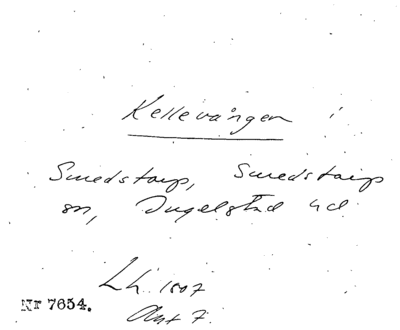 Kellevången
Smedstorp, Smedstorp
sn, Ingelstad hd
Lh. 1807
Akt 7.
Nr 7654.